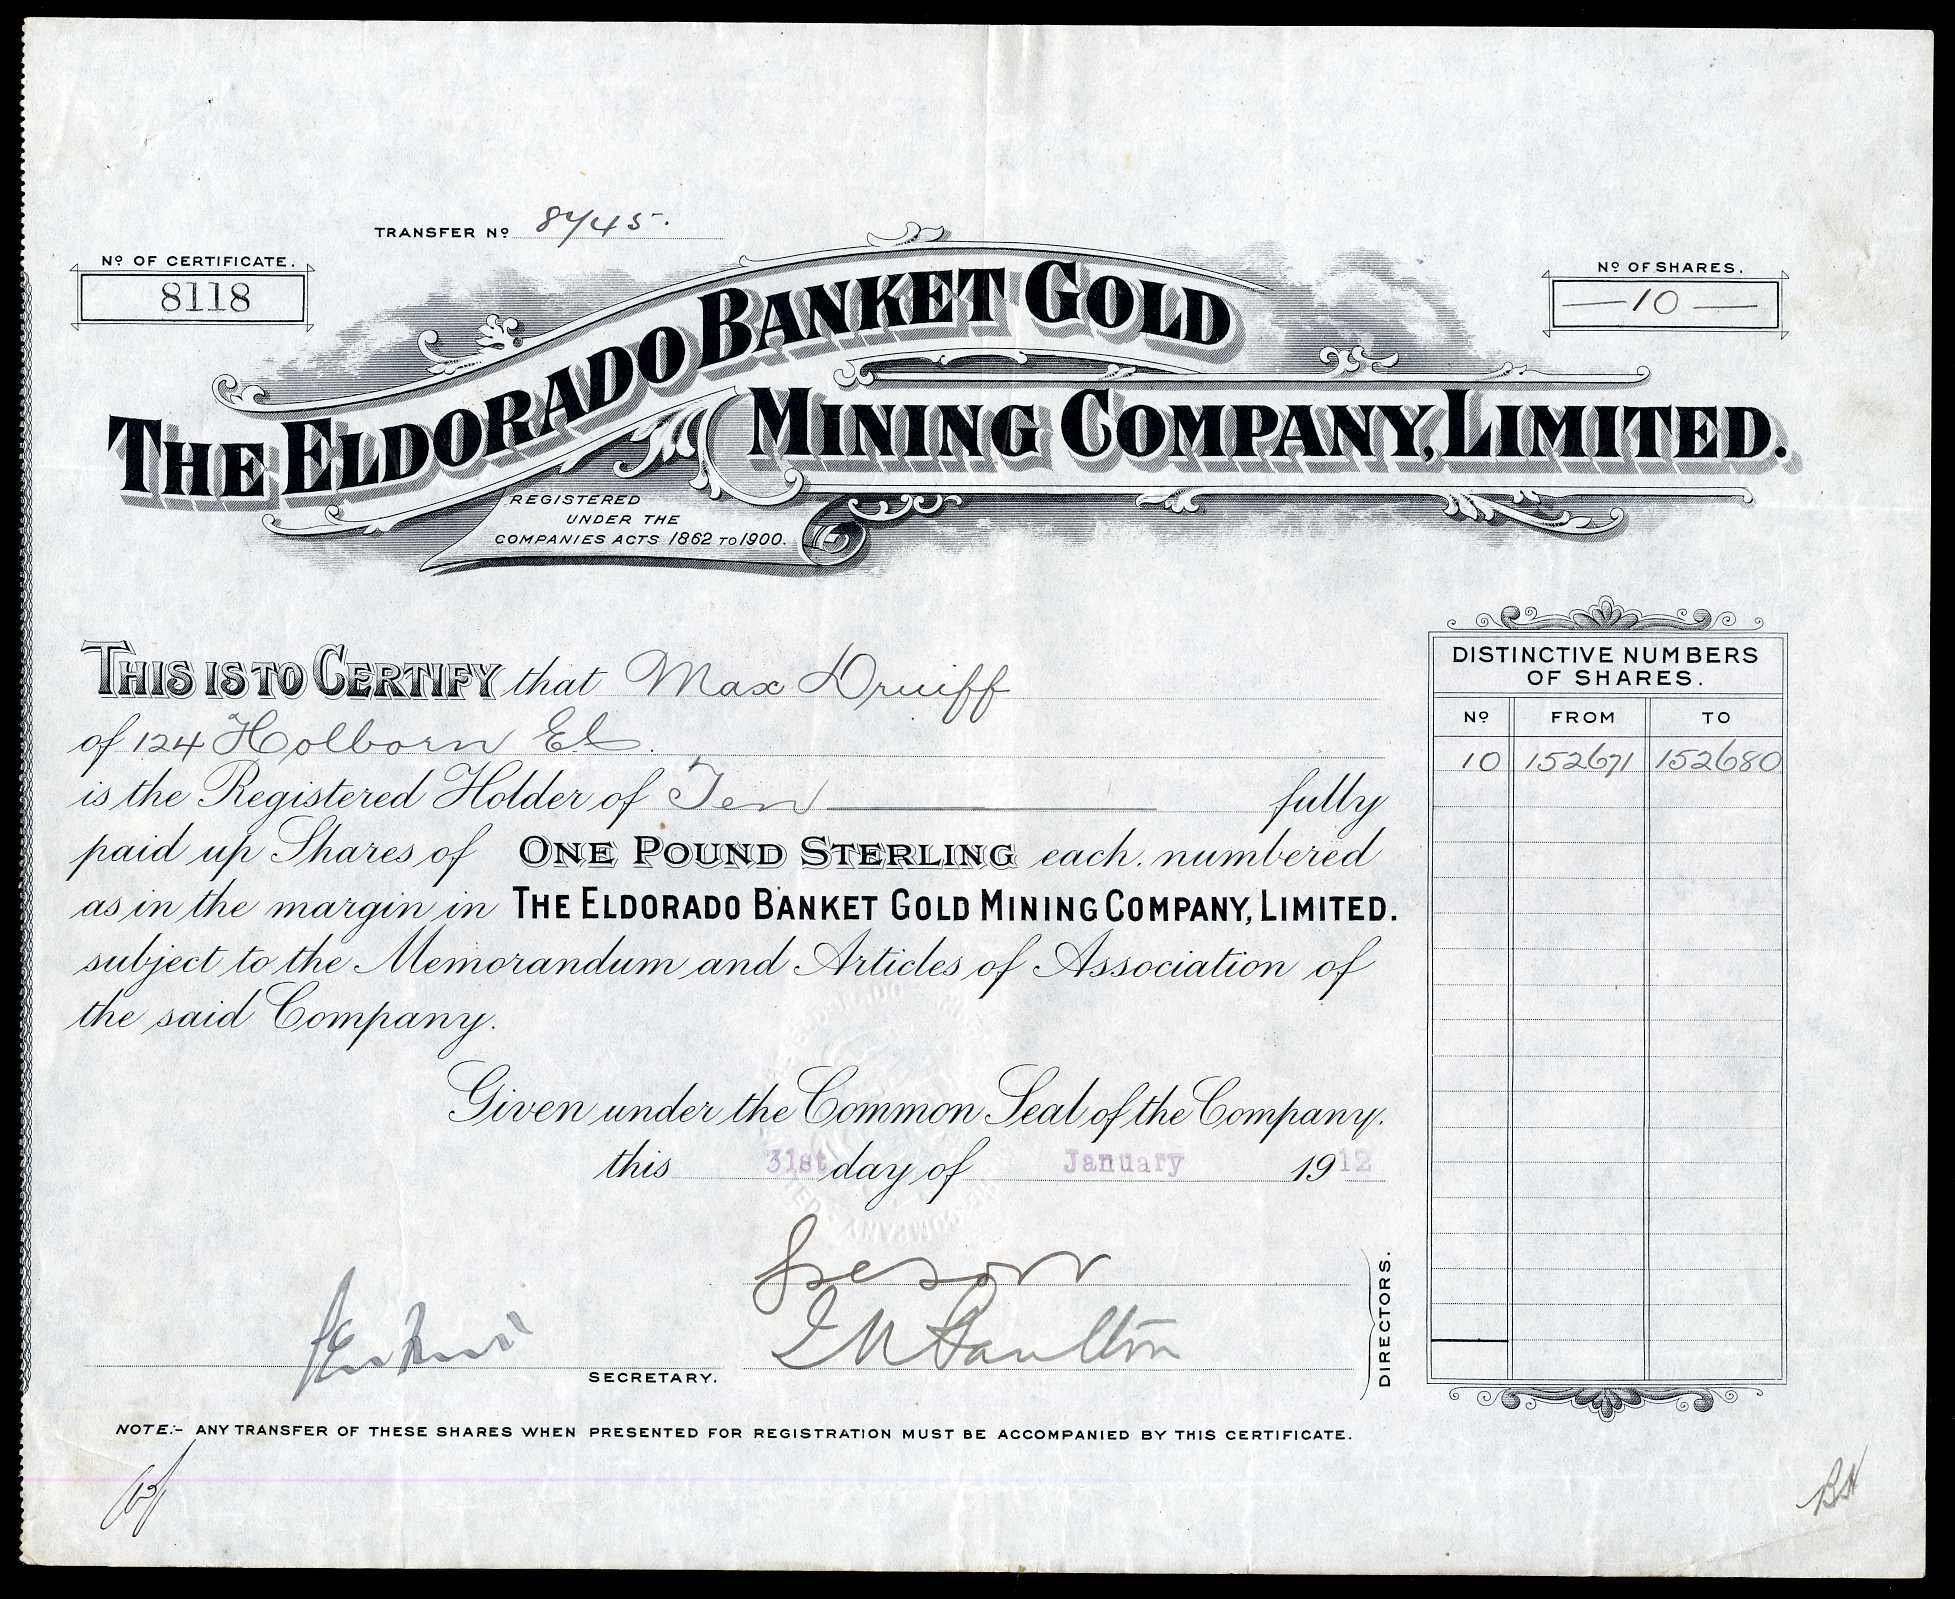 TRANSFER Nº 8745.
Nº OF CERTIFICATE.
8118
Nº OF SHARES.
—10—
THE ELDORADO BANKET GOLD
MINING COMPANY, LIMITED.
REGISTERED
UNDER THE
COMPANIES ACTS 1862 TO 1900.
THIS IS TO CERTIFY that Max Druiff
of 124 Holborn E.C.
is the Registered Holder of Ten fully
paid up Shares of ONE POUND STERLING each. numbered
as in the margin in THE ELDORADO BANKET GOLD MINING COMPANY, LIMITED.
subject to the Memorandum and Articles of Association of
the said Company.
Given under the Common Seal of the Company.
this 31st day of January 1912
SECRETARY.
DIRECTORS.
DISTINCTIVE NUMBERS
OF SHARES.
Nº FROM TO
10 152671 152680
NOTE:- ANY TRANSFER OF THESE SHARES WHEN PRESENTED FOR REGISTRATION MUST BE ACCOMPANIED BY THIS CERTIFICATE.